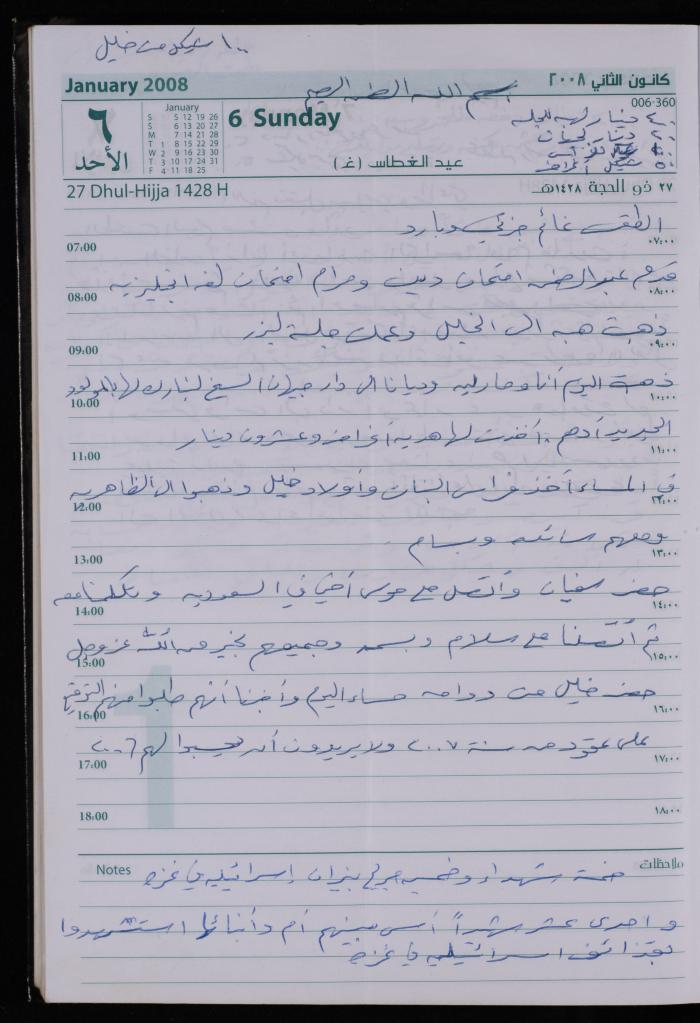 ١٠٠ شيكل من خليل
January 2008
كانون الثاني ٢٠٠٨
بسم الله الرحمن الرحيم
006-360
٦
الأحد
January
S 5 12 19 26
S 6 13 20 27
M 7 14 21 28
T 1 8 15 22 29
W 2 9 16 23 30
T 3 10 17 24 31
F 4 11 18 25
6 Sunday
عيد الغطاس (غ)
٤٠ دينار لهبه للجلسه
٢٠ دينار
٥٠ شيكل أغراض
27 Dhul-Hijja 1428 H
٢٧ ذو الحجة ١٤٢٨هـ
الطقس غائم جزئي وبارد
07:00 ٠٧:٠٠
قدم عبد الرحمن امتحان دين ومرام امتحان لغه انجليزيه
08:00 ٠٨:٠٠
ذهبت هبه الى الخليل وعملت جلسة ليزر
09:00 ٠٩:٠٠
ذهبت اليوم أنا وماريه وديانا الى دار جيران الشيخ لنبارك لها بالمولود
10:00 ١٠:٠٠
الجديد أدهم .. أخذت لها هديه أغراض وعشرون دينار
11:00 ١١:٠٠
في المساء أخذ فراس البنات وأولاد خليل وذهبوا الى الظاهريه
12:00 ١٢:٠٠
ومعهم وسام
13:00 ١٣:٠٠
حضر سفيان وأتصل على موسى أخي في السعوديه وتكلمنا معه
14:00 ١٤:٠٠
ثم أتصلنا على سلام وبسمه وجميعهم بخير من الله عز وجل
15:00 ١٥:٠٠
حضر خليل من دوامه مساء اليوم وأخبرنا أنهم طلبوا منهم التوقيع
16:00 ١٦:٠٠
على عقود من سنة ٢٠٠٧ ولا يريدون أن يحسبوا لهم ٢٠٠٦
17:00 ١٧:٠٠
18:00 ١٨:٠٠
Notes ملاحظات
خمسة شهداء وخمسه جرحى بنيران إسرائيليه في غزه
و احدى عشر شهيداً أمس بينهم أم وأبنائها استشهدوا
بقذائف اسرائيليه في غزه